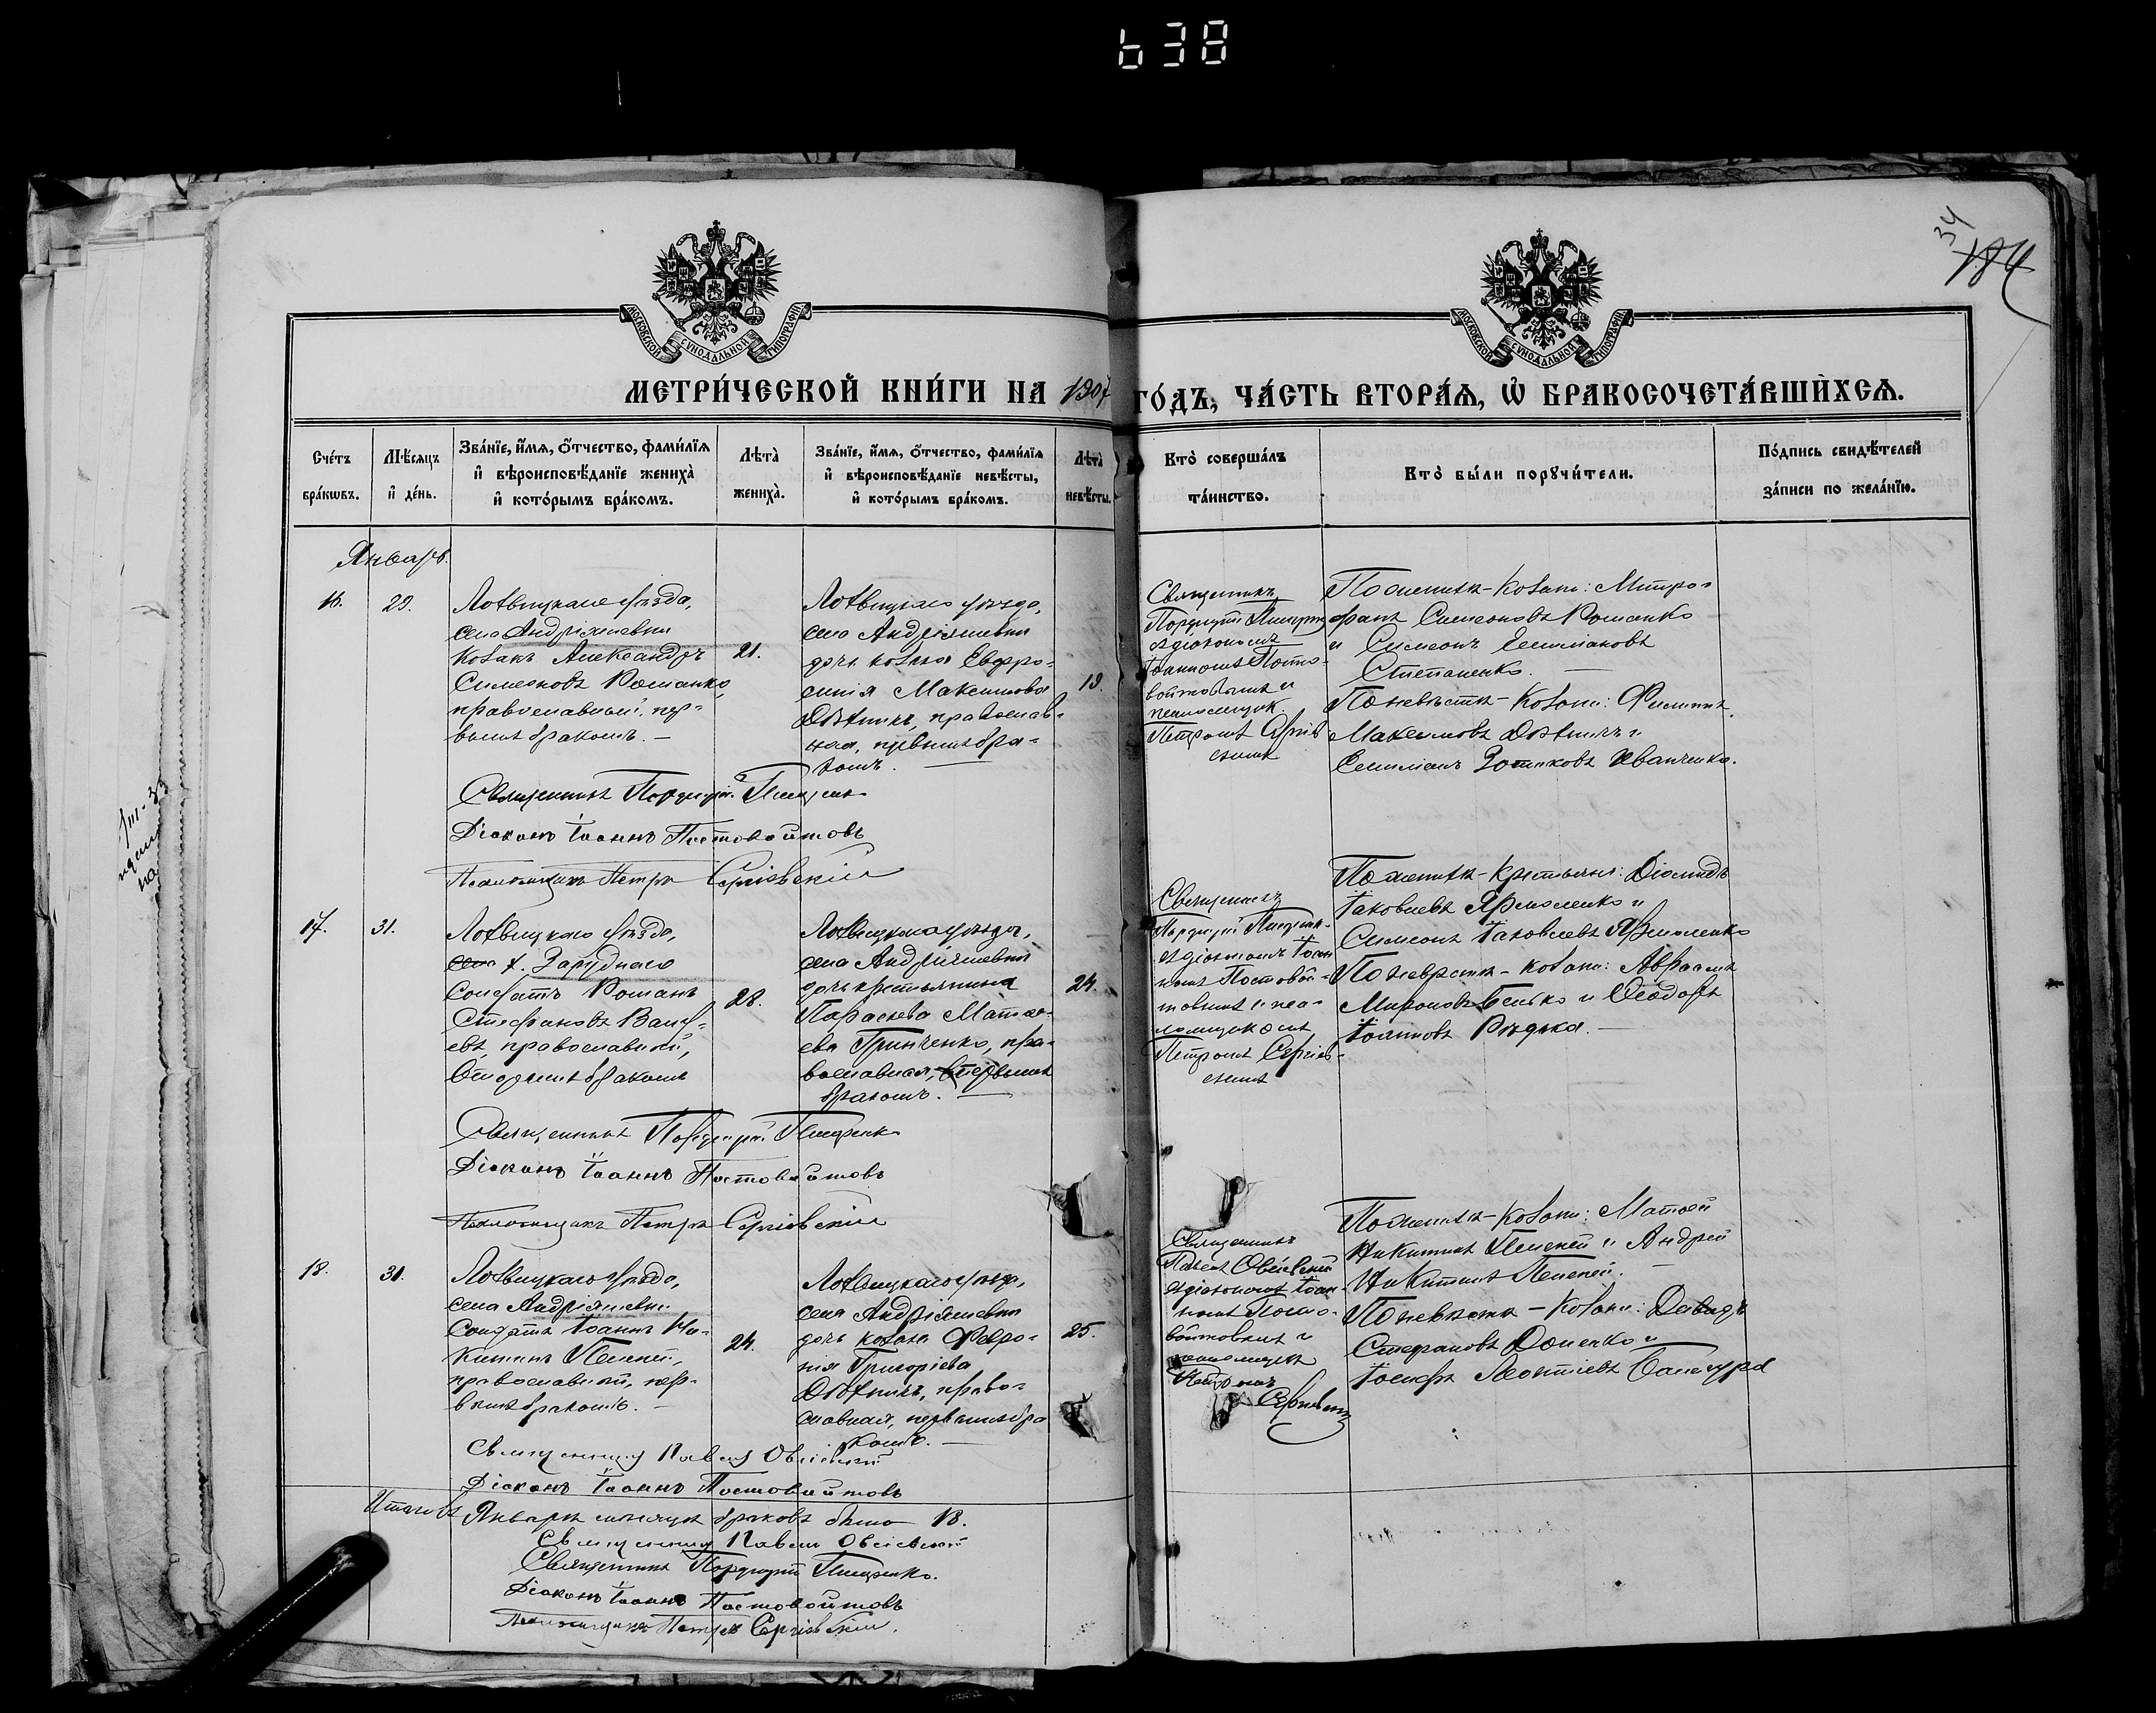 638
34
184
МОСКОВСКОЙ СУНОДАЛЬНОЙ ТИПОГРАФІИ
МОСКОВСКОЙ СУНОДАЛЬНОЙ ТИПОГРАФІИ
МЕТРИ́ЧЕСКОЙ КНИ́ГИ НА 1907 ГО́ДЪ, ЧА́СТЬ ВТОРА́Ѧ, Ѡ҆ БРАКОСОЧЕТА́ВШИХСѦ.
Сче́тъ
бра́кѡвъ.
Мѣ́сѧцъ
и҆ де́нь.
Зва́нїе, и҆́мѧ, ѻ҆́тчество, фами́лїѧ
и҆ вѣроисповѣ́данїе жениха̀
и҆ кото́рымъ бра́комъ.
Лѣ́та̀
жениха̀.
Зва́нїе, и҆́мѧ, ѻ҆́тчество, фами́лїѧ
и҆ вѣроисповѣ́данїе невѣ́сты,
и҆ кото́рымъ бра́комъ.
Лѣ́та̀
невѣ́сты.
Кто̀ соверша́лъ
та́инство.
Кто̀ бы́ли порꙋчи́тели.
По́дпись свидѣ́телей
за́писи по жела́нїю.
Январь.
16.
29.
Лохвицкаго уѣзда,
села Андріяшевки
козакъ Александръ
Симеоновъ Романко,
православный, пер-
вымъ бракомъ. —
21.
Лохвицкаго уѣзда,
села Андріяшевки
дочь козака Евфро-
синія Максимова
православ-
ная, первымъ бра-
комъ.
19.
Священникъ
Порфирій Пищенко
съ діакономъ
Іоанномъ Посто-
войтовымъ и
псаломщик.
Петромъ Сергіев
скимъ
По женихѣ - козаки: Митро-
фанъ Симеоновъ Романко
и Симеонъ Емиліановъ
Степаненко. —
По невѣстѣ - козаки: Филиппъ
Максимовъ и
Емиліанъ Иванченко.
Священникъ Порфирій Пищенко
Діаконъ Іоаннъ Постовойтовъ
Псаломщикъ Петръ Сергіевскій
17.
31.
Лохвицкаго уѣзда,
села х. Заруднаго
Солдатъ Романъ
Стефановъ
православный,
вторымъ бракомъ
28.
Лохвицкаго уѣзда,
села Андріяшевки
дочь крестьянина
Параскева Матѳе-
ева Гринченко, пра-
вославная, первымъ
бракомъ. —
24.
Священникъ
Порфирій Пищенко
съ діакономъ Іоан
номъ Постовой-
товымъ и пса-
ломщикомъ
Петромъ Сергіев-
скимъ
По женихѣ - крестьяне: Діомидъ
Іаковлевъ Ярмоленко и
Симеонъ Іаковлевъ Ярмоленко
По невѣстѣ - козаки: Авраамъ
Мироновъ Белько и Ѳеодоръ
Іоанновъ Рѣдька. —
Священникъ Порфирій Пищенко
Діаконъ Іоаннъ Постовойтовъ
Псаломщикъ Петръ Сергіевскій
18.
31.
Лохвицкаго уѣзда,
села Андріяшевки
Солдатъ Іоаннъ Ни-
китинъ Пелепей,
православный, пер-
вымъ бракомъ. —
24.
Лохвицкаго уѣзда,
села Андріяшевки
дочь козака Февро-
нія Григоріева
право-
славная, первымъ бра
комъ. —
25.
Священникъ
Павелъ Овсіевскій
съ діакономъ Іоан-
номъ Посто-
войтовымъ и
псаломщикъ
Петромъ
Сергіевскимъ
По женихѣ - козаки: Матѳей
Никитинъ Пелепей и Андрей
Никитинъ Пелепей. —
По невѣстѣ - козаки: Давидъ
Стефановъ и
Іосифъ Леонтіевъ
Священникъ Павелъ Овсіевскій
Діаконъ Іоаннъ Постовойтовъ
Итого въ Январѣ мѣсяцѣ браковъ было 18.
Священникъ Павелъ Овсіевскій
Священникъ Порфирій Пищенко.
Діаконъ Іоаннъ Постовойтовъ
Псаломщикъ Петръ Сергіевскій.